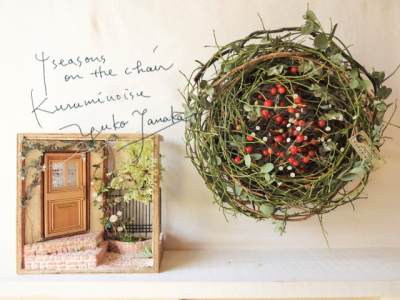 4 seasons
on the chair
Kuruminoisu
Yuko Tanaka